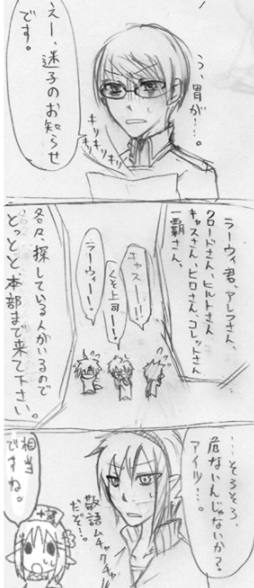 えー、迷子のお知らせ
です。
う、胃が…。
キリキリキリ
ラーウィ君、アレフさん、
クロードさん、ヒルトさん
キャスさん、ヒロさん、コレットさん
一覇さん、
キャスー!!!
くそ上司ーー!
ラーウィーー。
各々探している人がいるので
とっとと、本部まで来て下さい。
…そろそろ、
危ないんじゃないか?
アイツ…。
敬語ムチャクチャ
だぞ…。
相当
ですね。